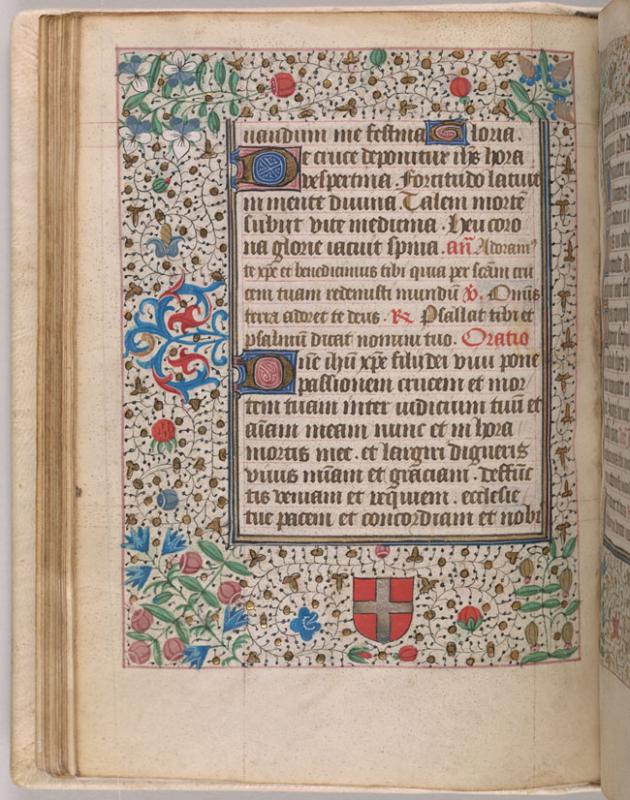 uandum me festina Gloria.
De cruce deponitur ihs hora
vespertina. Fortitudo latuit
in mente diuina Talem mortē
subijt vite medicina. heu coro
na glorie iacuit spina. añ Adoram⁹
te xp̄e et benedicimus tibi quia per scām cru
cem tuam redemisti mundū ℣. Omnis
terra adoret te deus. ℟ Psallat tibi et
psalmū dicat nomini tuo. Oratio
Dn̄e ihū xp̄e fili dei viui pone
passionem crucem et mor
tem tuam inter iudicium tuū et
aīam meam nunc et in hora
mortis mee. et largiri digneris
viuis m̄iam et graciam. deffūc
tis veniam et requiem. ecclesie
tue pacem et concordiam et nobi